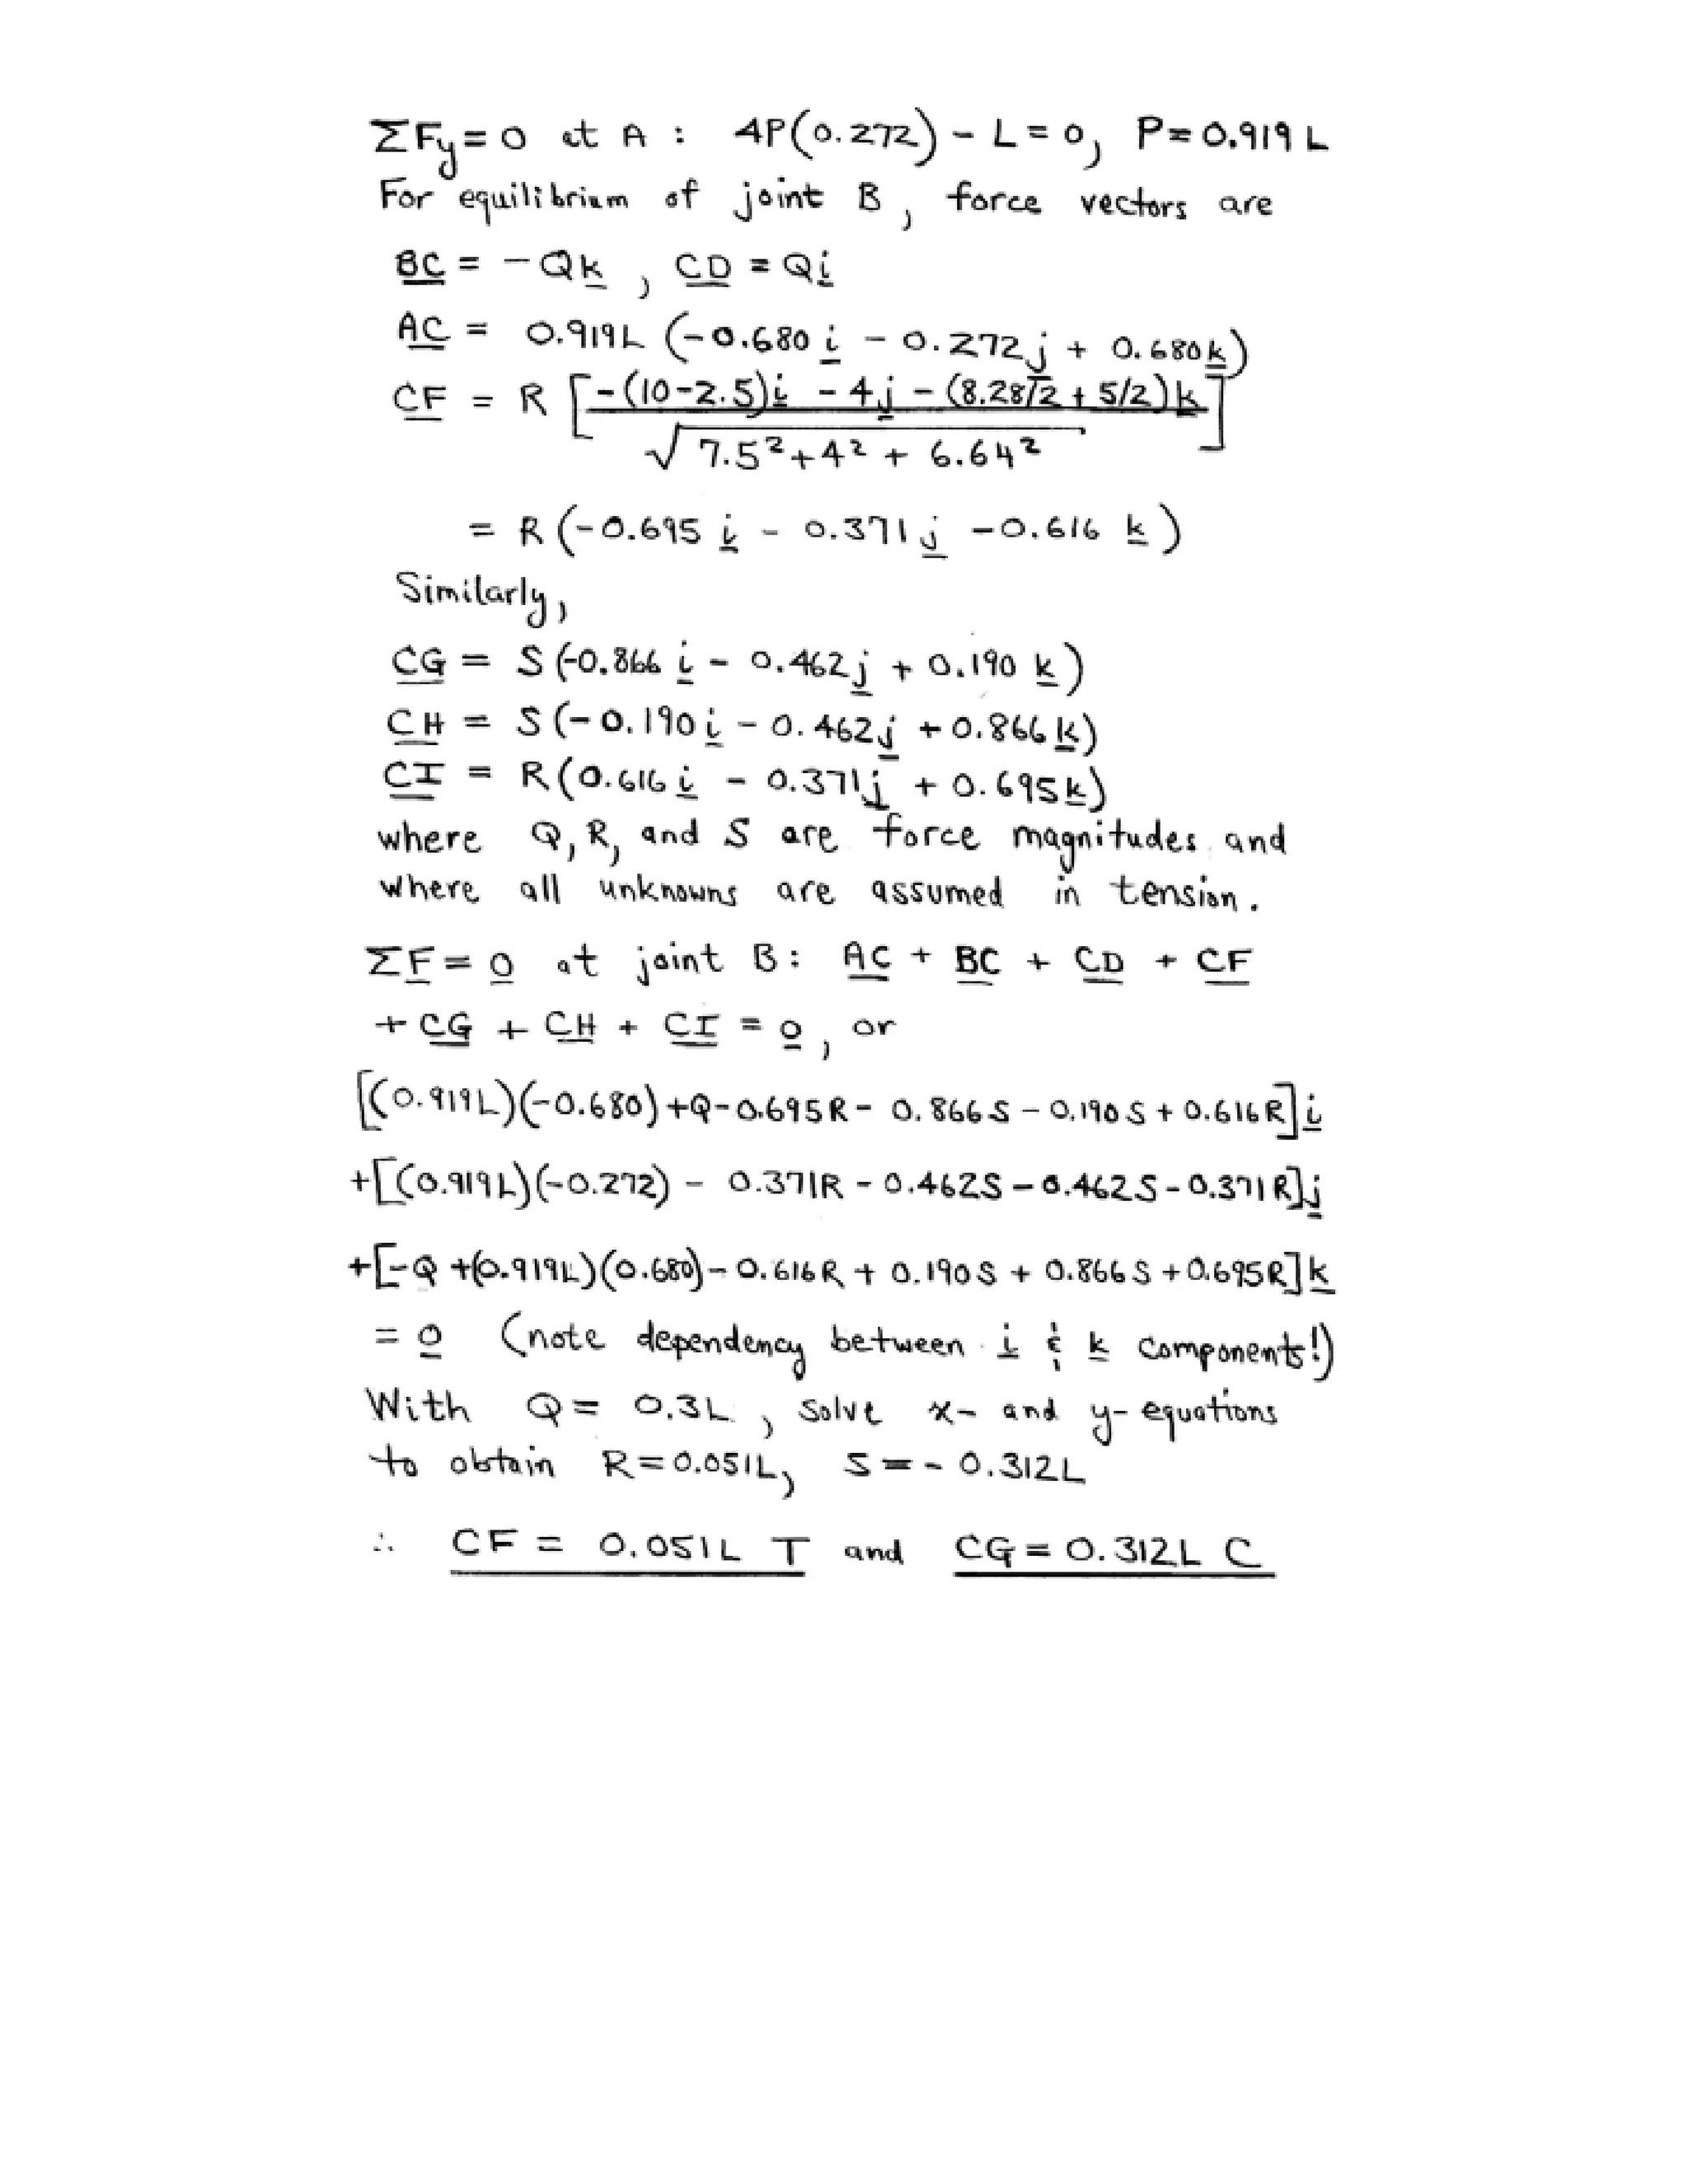 ΣFy = 0 at A : 4P(0.272) - L = 0, P = 0.919 L
For equilibrium of joint B, force vectors are
BC = - Qk , CD = Qi
AC = 0.919L (-0.680 i - 0.272 j + 0.680 k)
CF = R [-(10-2.5)i - 4j - (8.28/2 + 5/2)k]
√7.5² + 4² + 6.64²
= R (-0.695 i - 0.371 j - 0.616 k)
Similarly,
CG = S (-0.866 i - 0.462 j + 0.190 k)
CH = S (-0.190 i - 0.462 j + 0.866 k)
CI = R (0.616 i - 0.371 j + 0.695 k)
where Q, R, and S are force magnitudes and
where all unknowns are assumed in tension.
ΣF = 0 at joint B: AC + BC + CD + CF
+ CG + CH + CI = 0, or
[(0.919L)(-0.680) + Q - 0.695R - 0.866S - 0.190S + 0.616R] i
+[(0.919L)(-0.272) - 0.371R - 0.462S - 0.462S - 0.371R] j
+[-Q + (0.919L)(0.680) - 0.616R + 0.190S + 0.866S + 0.695R] k
= 0 (note dependency between i & k components!)
With Q = 0.3L, solve x- and y- equations
to obtain R = 0.051L, S = - 0.312L
∴ CF = 0.051L T and CG = 0.312L C